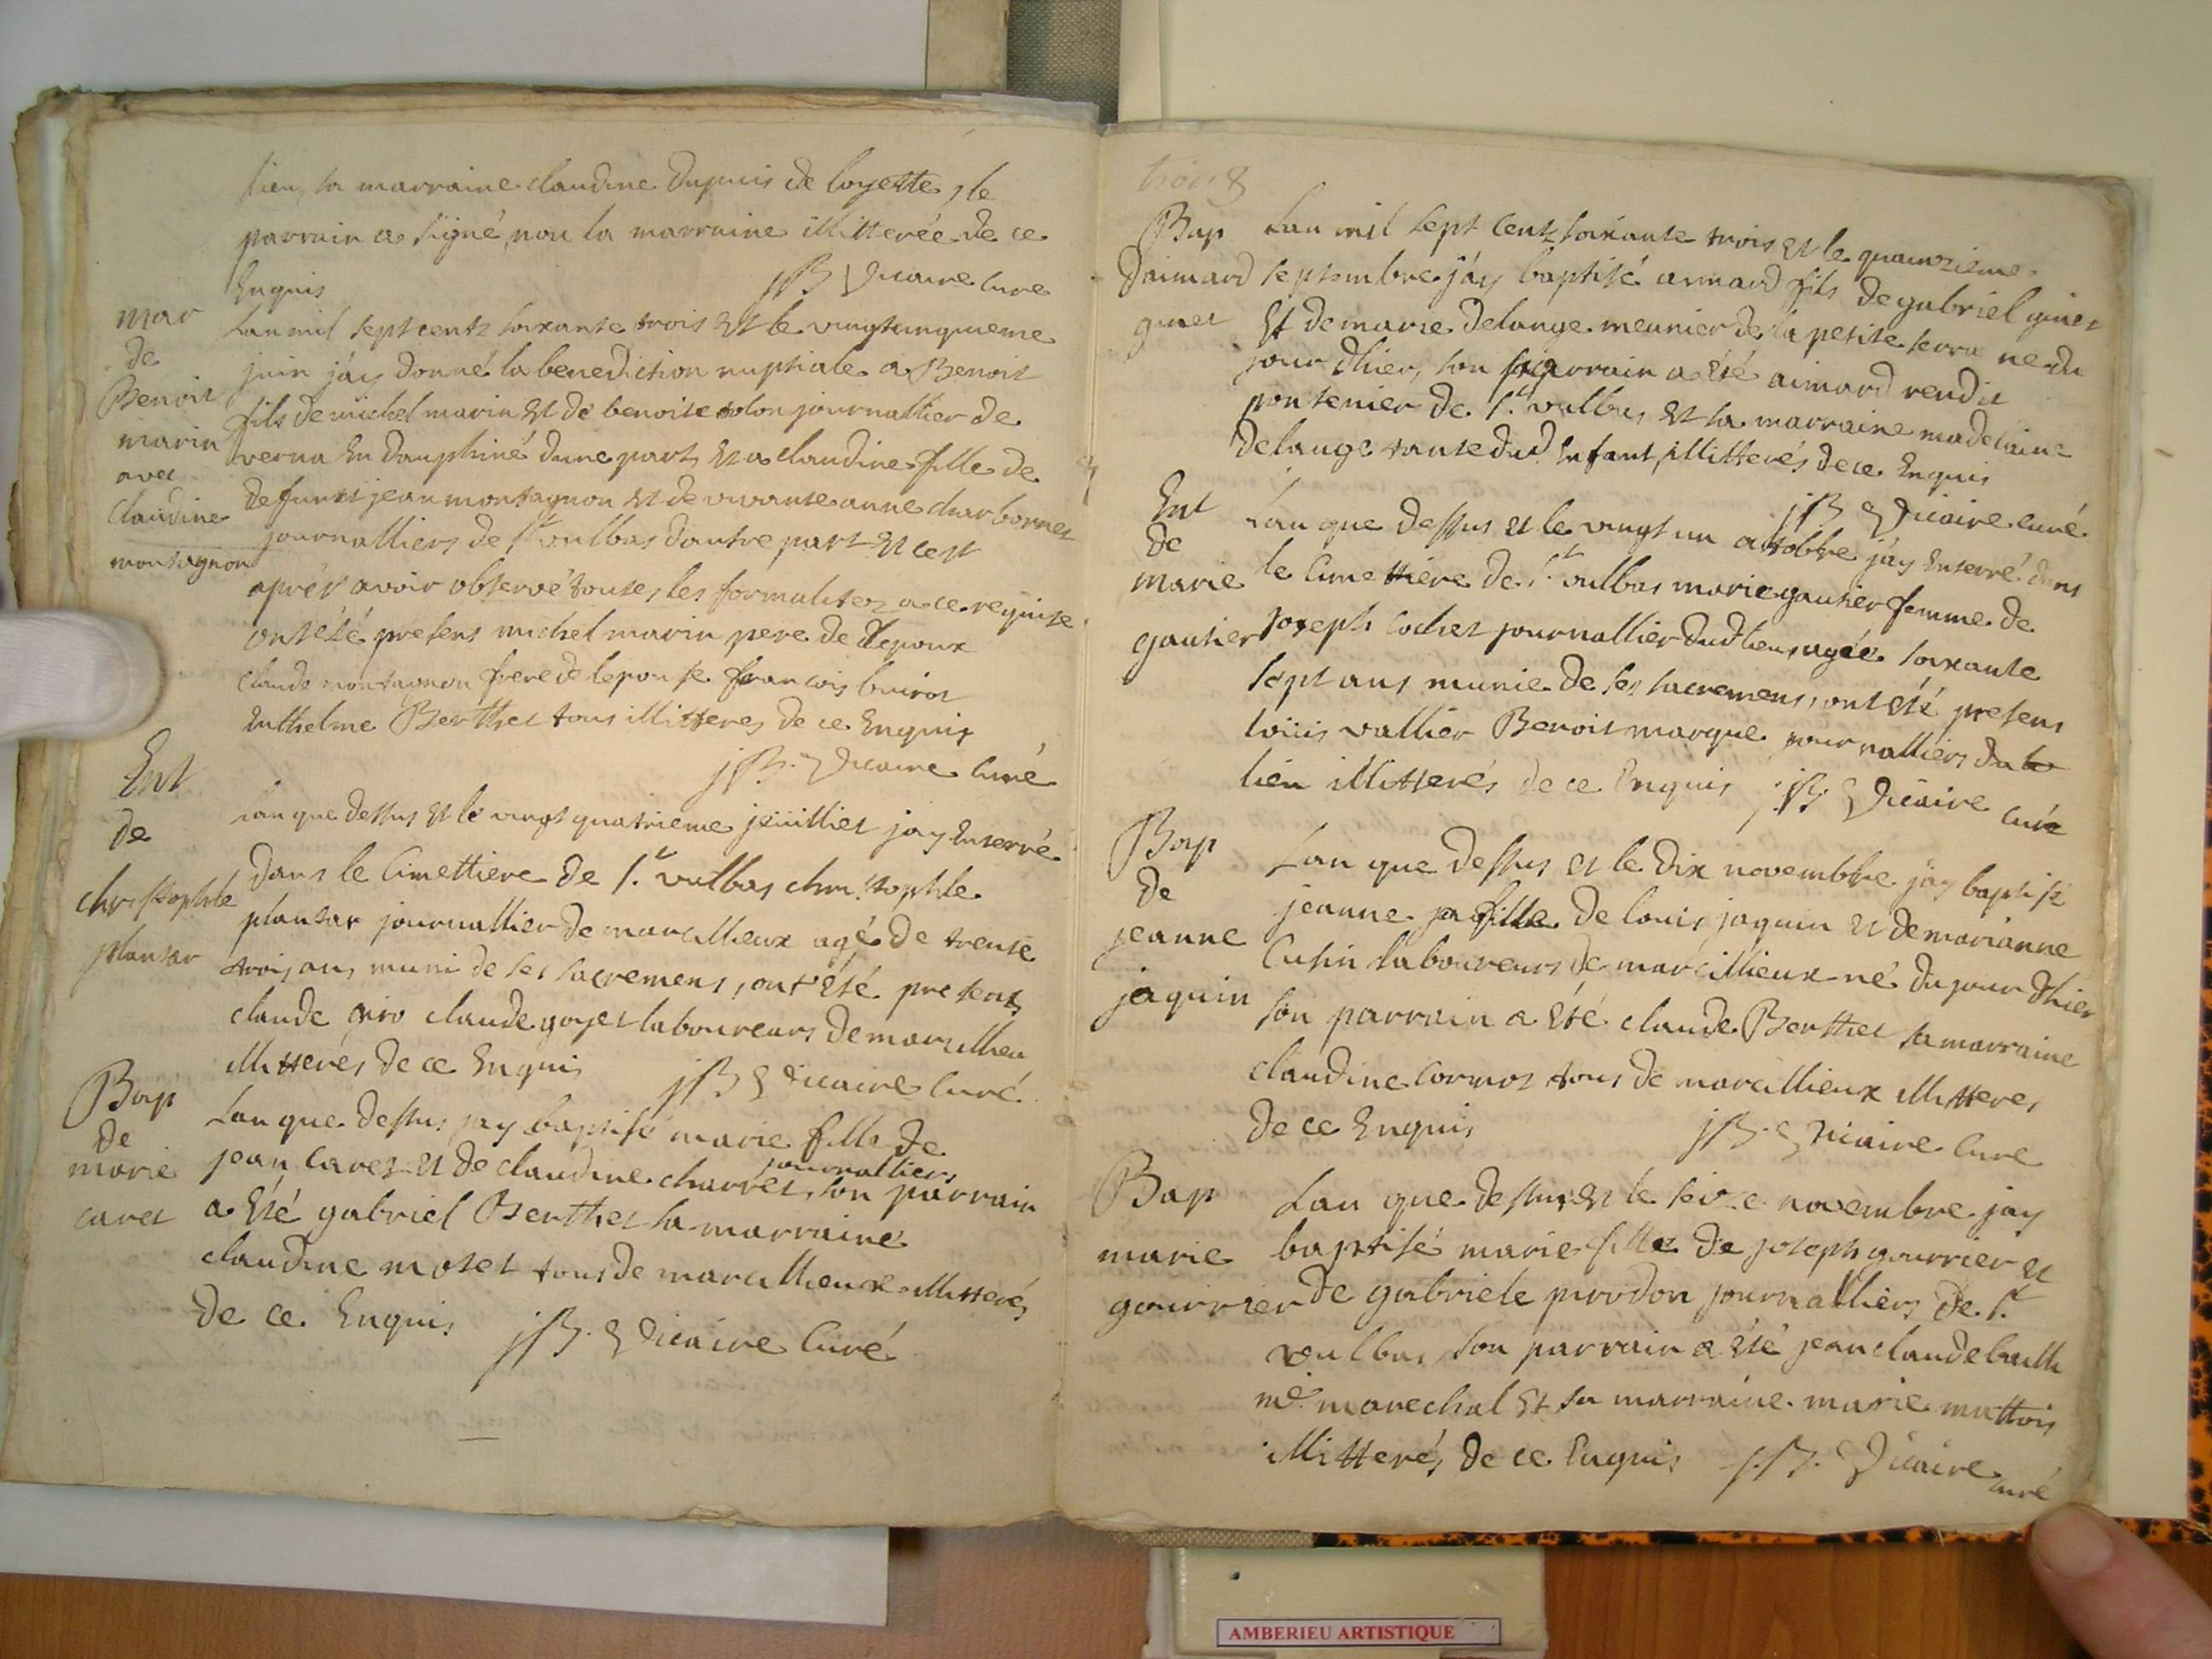 lieu, sa marraine claudine Dupuis de loyette, le
parrain a signé, non la marraine illitterée de ce
Enquis JB Dicaire Cure
mar de Benoit marin avec claudine montagnon
Lan mil sept centz soixante trois Et le vingtcinquieme
juin j'ay donné la benediction nuptiale a Benoit
fils de michel marin Et de benoite solon journallier de
verna En dauphiné dune part, Et a claudine fille de
defunct jean montagnon Et de vivante anne charbonnet
journalliers de St vulbas dautre part Et cest
aprés avoir observé toutes les formalitez a ce requise
ont été presens michel marin pere de lepoux
claude montagnon frere de lepouse francois buirot
Enthelme Berthet tous illitteres de ce Enquis
JB. Dicaire Curé
Ent de christophle plantar
Lan que dessus Et le vingt quatrieme jeüilliet jay Enterré
dans le Cimettiere de St vulbas christophle
plantar journallier de marcillieux agé de trente
trois ans, muni de ses sacremens, ont été presens
claude giro claude goyet laboureurs de marcillieu
illitterés de ce Enquis JB Dicaire Curé
Bap de marie caret
Lan que dessus jay baptisé marie fille de
jean Caret Et de claudine charret, journalliers son parrain
a Eté gabriel Berthet sa marraine
claudine moset tous de marcillieux illitterés
de ce Enquis JB. Dicaire Curé
trois 8
Bap daimard ginet
Lan mil sept Centz soixante trois Et le quainzieme
septembre j'ay baptisé aimard fils de gabriel ginet
Et de marie delange meunier de la petite serra ne du
jour dhier, son parrain a Eté aimard rendit
pontenier de St vulbas Et sa marraine madelaine
delange tante dud Enfant, illitterés de ce Enquis
JB Dicaire curé
Ent de marie gautier
Lan que dessus Et le vingt un octobbre j'ay Enterré dans
le Cimettiere de St vulbas marie gautier femme de
joseph Cochet journallier dud lieu, agée soixante
sept ans munie de ses sacremens, ont été presens
loüis vallier Benoit marque journalliers du
lieu illitterés de ce Enquis JB Dicaire Curé
Bap de jeanne jaquin
Lan que dessus Et le dix novembbre j'ay baptisé
jeanne fille de louis jaquin Et de marianne
Cusin laboureurs de marcillieux né du jour dhier
son parrain a Eté claude Berthet sa marraine
claudine Cormot tous de marcillieux illitteres
de ce Enquis JB. Dicaire Cure
Bap marie gourrier
Lan que dessus Et le seize novembre jay
baptisé marie fille de joseph gourrier Et
de gabriele prrodon journalliers de St
vulbas, son parrain a Eté jean claude
me marechal Et sa marraine marie muttois
illitterés de ce Enquis JB. Dicaire curé
AMBERIEU ARTISTIQUE